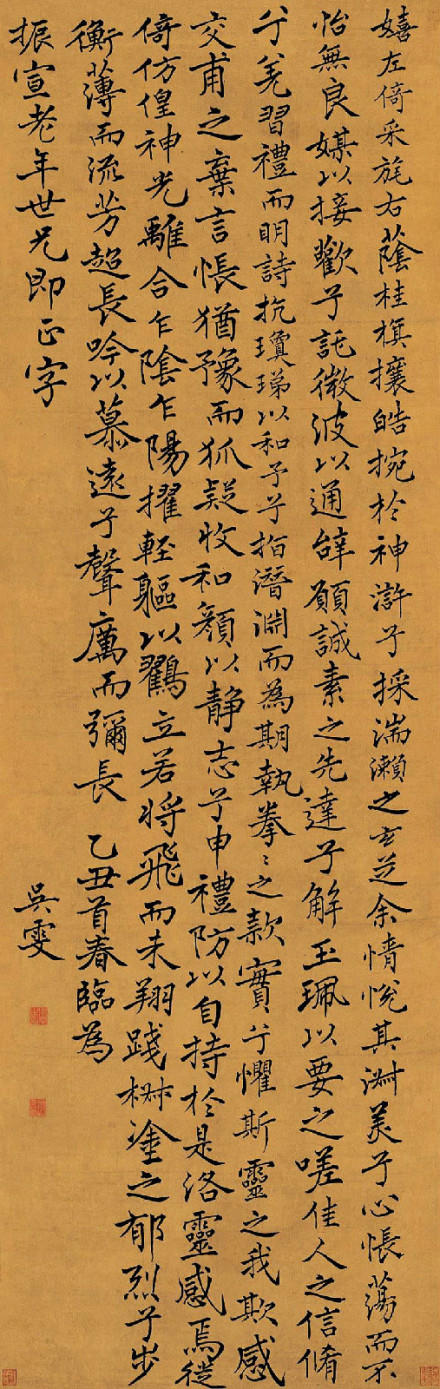 嬉左倚采旄右蔭桂旗攘皓捥於神滸兮採湍瀨之玄芝余情悅其淑美兮心悵蕩而不
怡無良媒以接歡兮託微波以通辝願誠素之先達兮解玉珮以要之嗟佳人之信脩
兮羌習禮而明詩抗瓊珶以和予兮指潛淵而為期執拳〻之款實兮懼斯靈之我欺感
交甫之棄言悵猶豫而狐疑收和顏以静志兮申禮防以自持於是洛靈感焉徙
倚仿偟神光離合乍陰乍陽擢輕軀以鶴立若将飛而未翔踐椒塗之郁烈兮步
衡薄而流芳超長吟以慕遠兮聲厲而彌長 乙丑首春臨為
振宣老年世兄即正字
吳雯